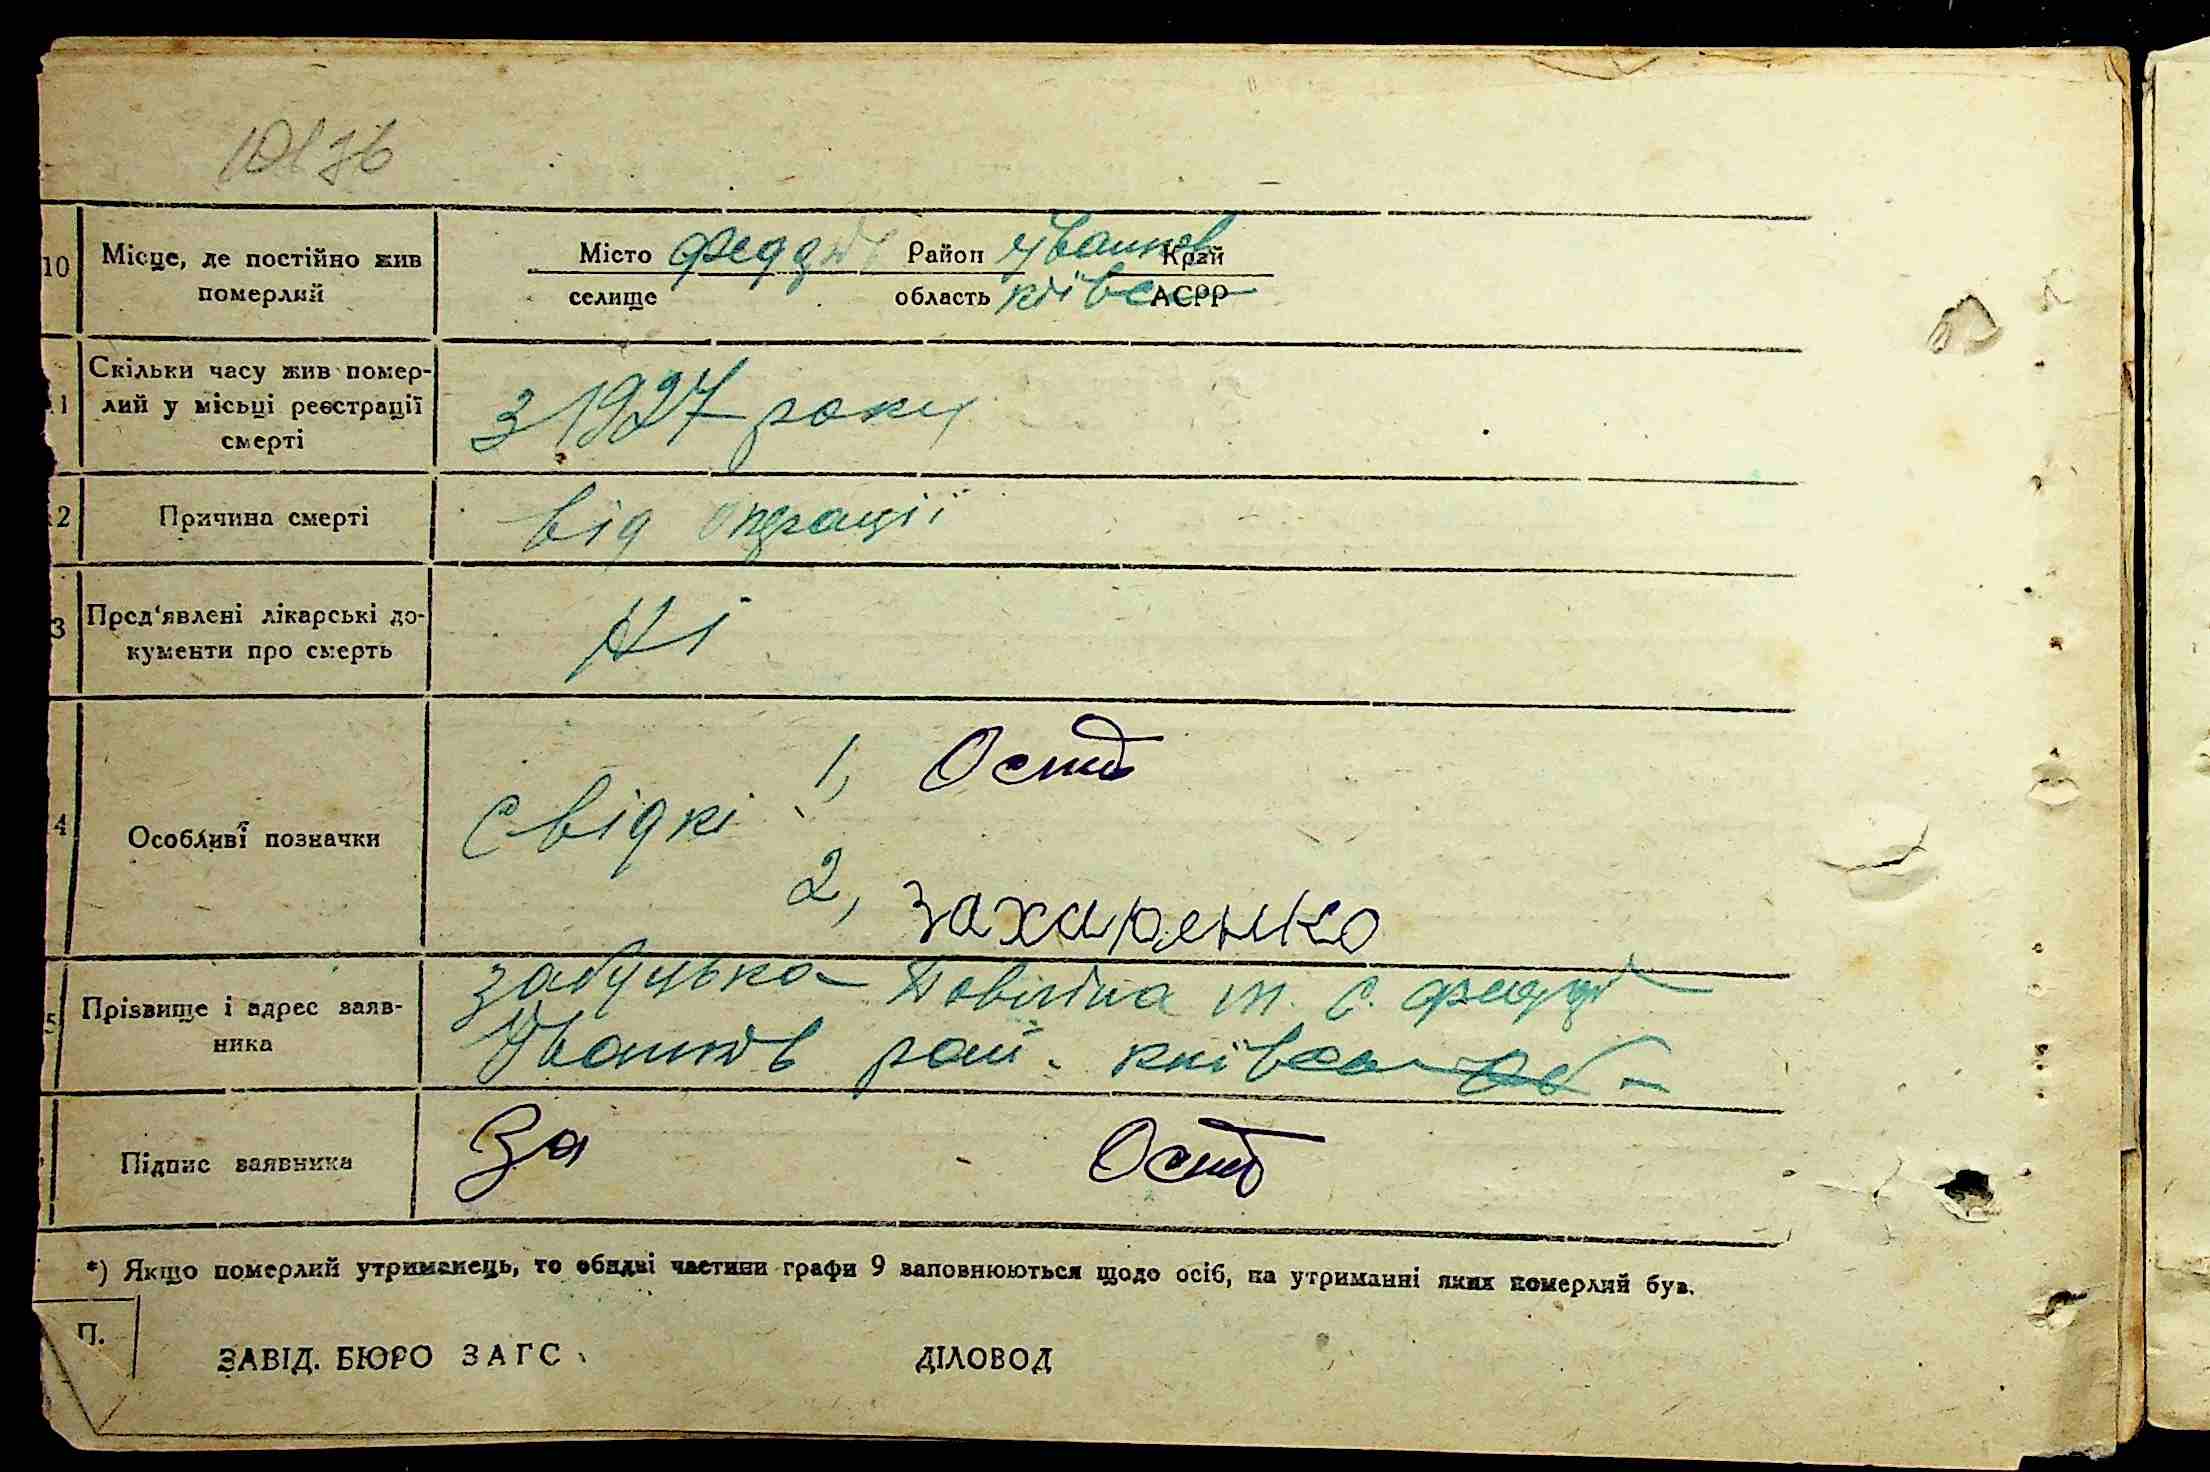 10
Місце, де постійно жив
померлий
Місто Район Іванков Край
селище область київск АСРР
Скільки часу жив помер-
лий у місьці реєстрації
смерті
З 1927 року
2 Причина смерті від опрації
3 Пред'явлені лікарські до-
кументи про смерть
Ні
4 Особливі позначки
Свідкі 1,
2, Захаренко
5 Прізвище і адрес заяв-
ника
забуцька т. с.
Іванков рай. київск об
Підпис заявника За
*) Якщо померлий утриманець, то обидві частини графи 9 заповнюються щодо осіб, на утриманні яких померлий був.
П.
ЗАВІД. БЮРО ЗАГС ДІЛОВОД